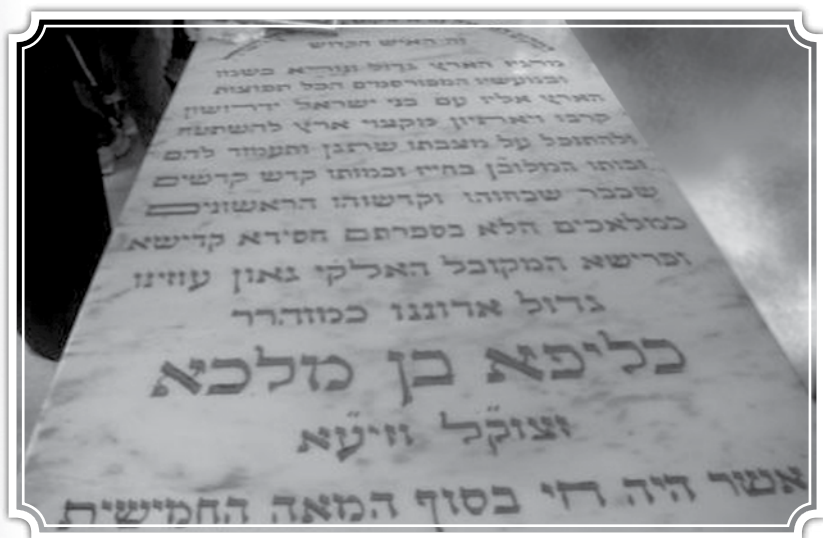 זה האיש הקדוש
הארץ גדול ונורא בשמו
הכל תפוצות
הארץ אליו עם בני ישראל
מקצוי ארץ להשתטח
ולהתנפל על מצבתו ותעמוד להם
זכותו בחייו ובמותו קדש קדשים
שכבר שבחוהו וקדשוהו הראשונים
כמלאכים הלא בספרתם חסידא קדישא
ופרישא המקובל האלקי גאון עוזינו
גדול אדוננו כמוהרר
כליפא בן מלכא
זצוק״ל זיע״א
אשר היה חי בסוף המאה החמישית